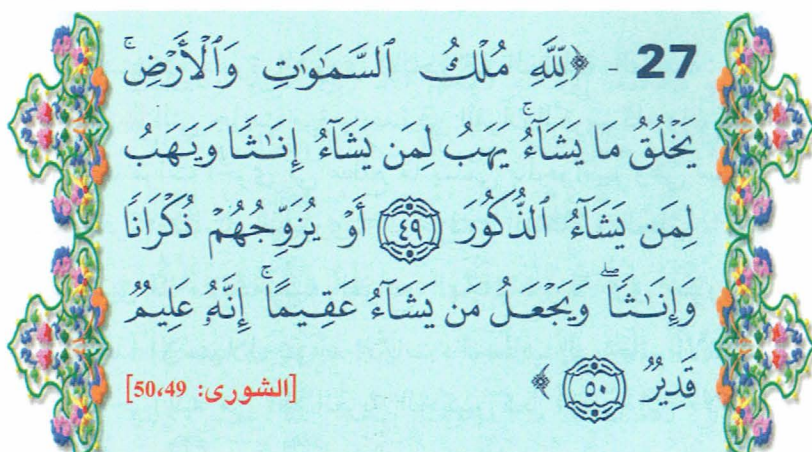 27 - ﴿لِّلَّهِ مُلْكُ ٱلسَّمَٰوَٰتِ وَٱلْأَرْضِ ۚ
يَخْلُقُ مَا يَشَآءُ ۚ يَهَبُ لِمَن يَشَآءُ إِنَٰثًا وَيَهَبُ
لِمَن يَشَآءُ ٱلذُّكُورَ ﴿٤٩﴾ أَوْ يُزَوِّجُهُمْ ذُكْرَانًا
وَإِنَٰثًا ۖ وَيَجْعَلُ مَن يَشَآءُ عَقِيمًا ۚ إِنَّهُۥ عَلِيمٌ
قَدِيرٌ ﴿٥٠﴾ ﴾ [الشورى: 49، 50]